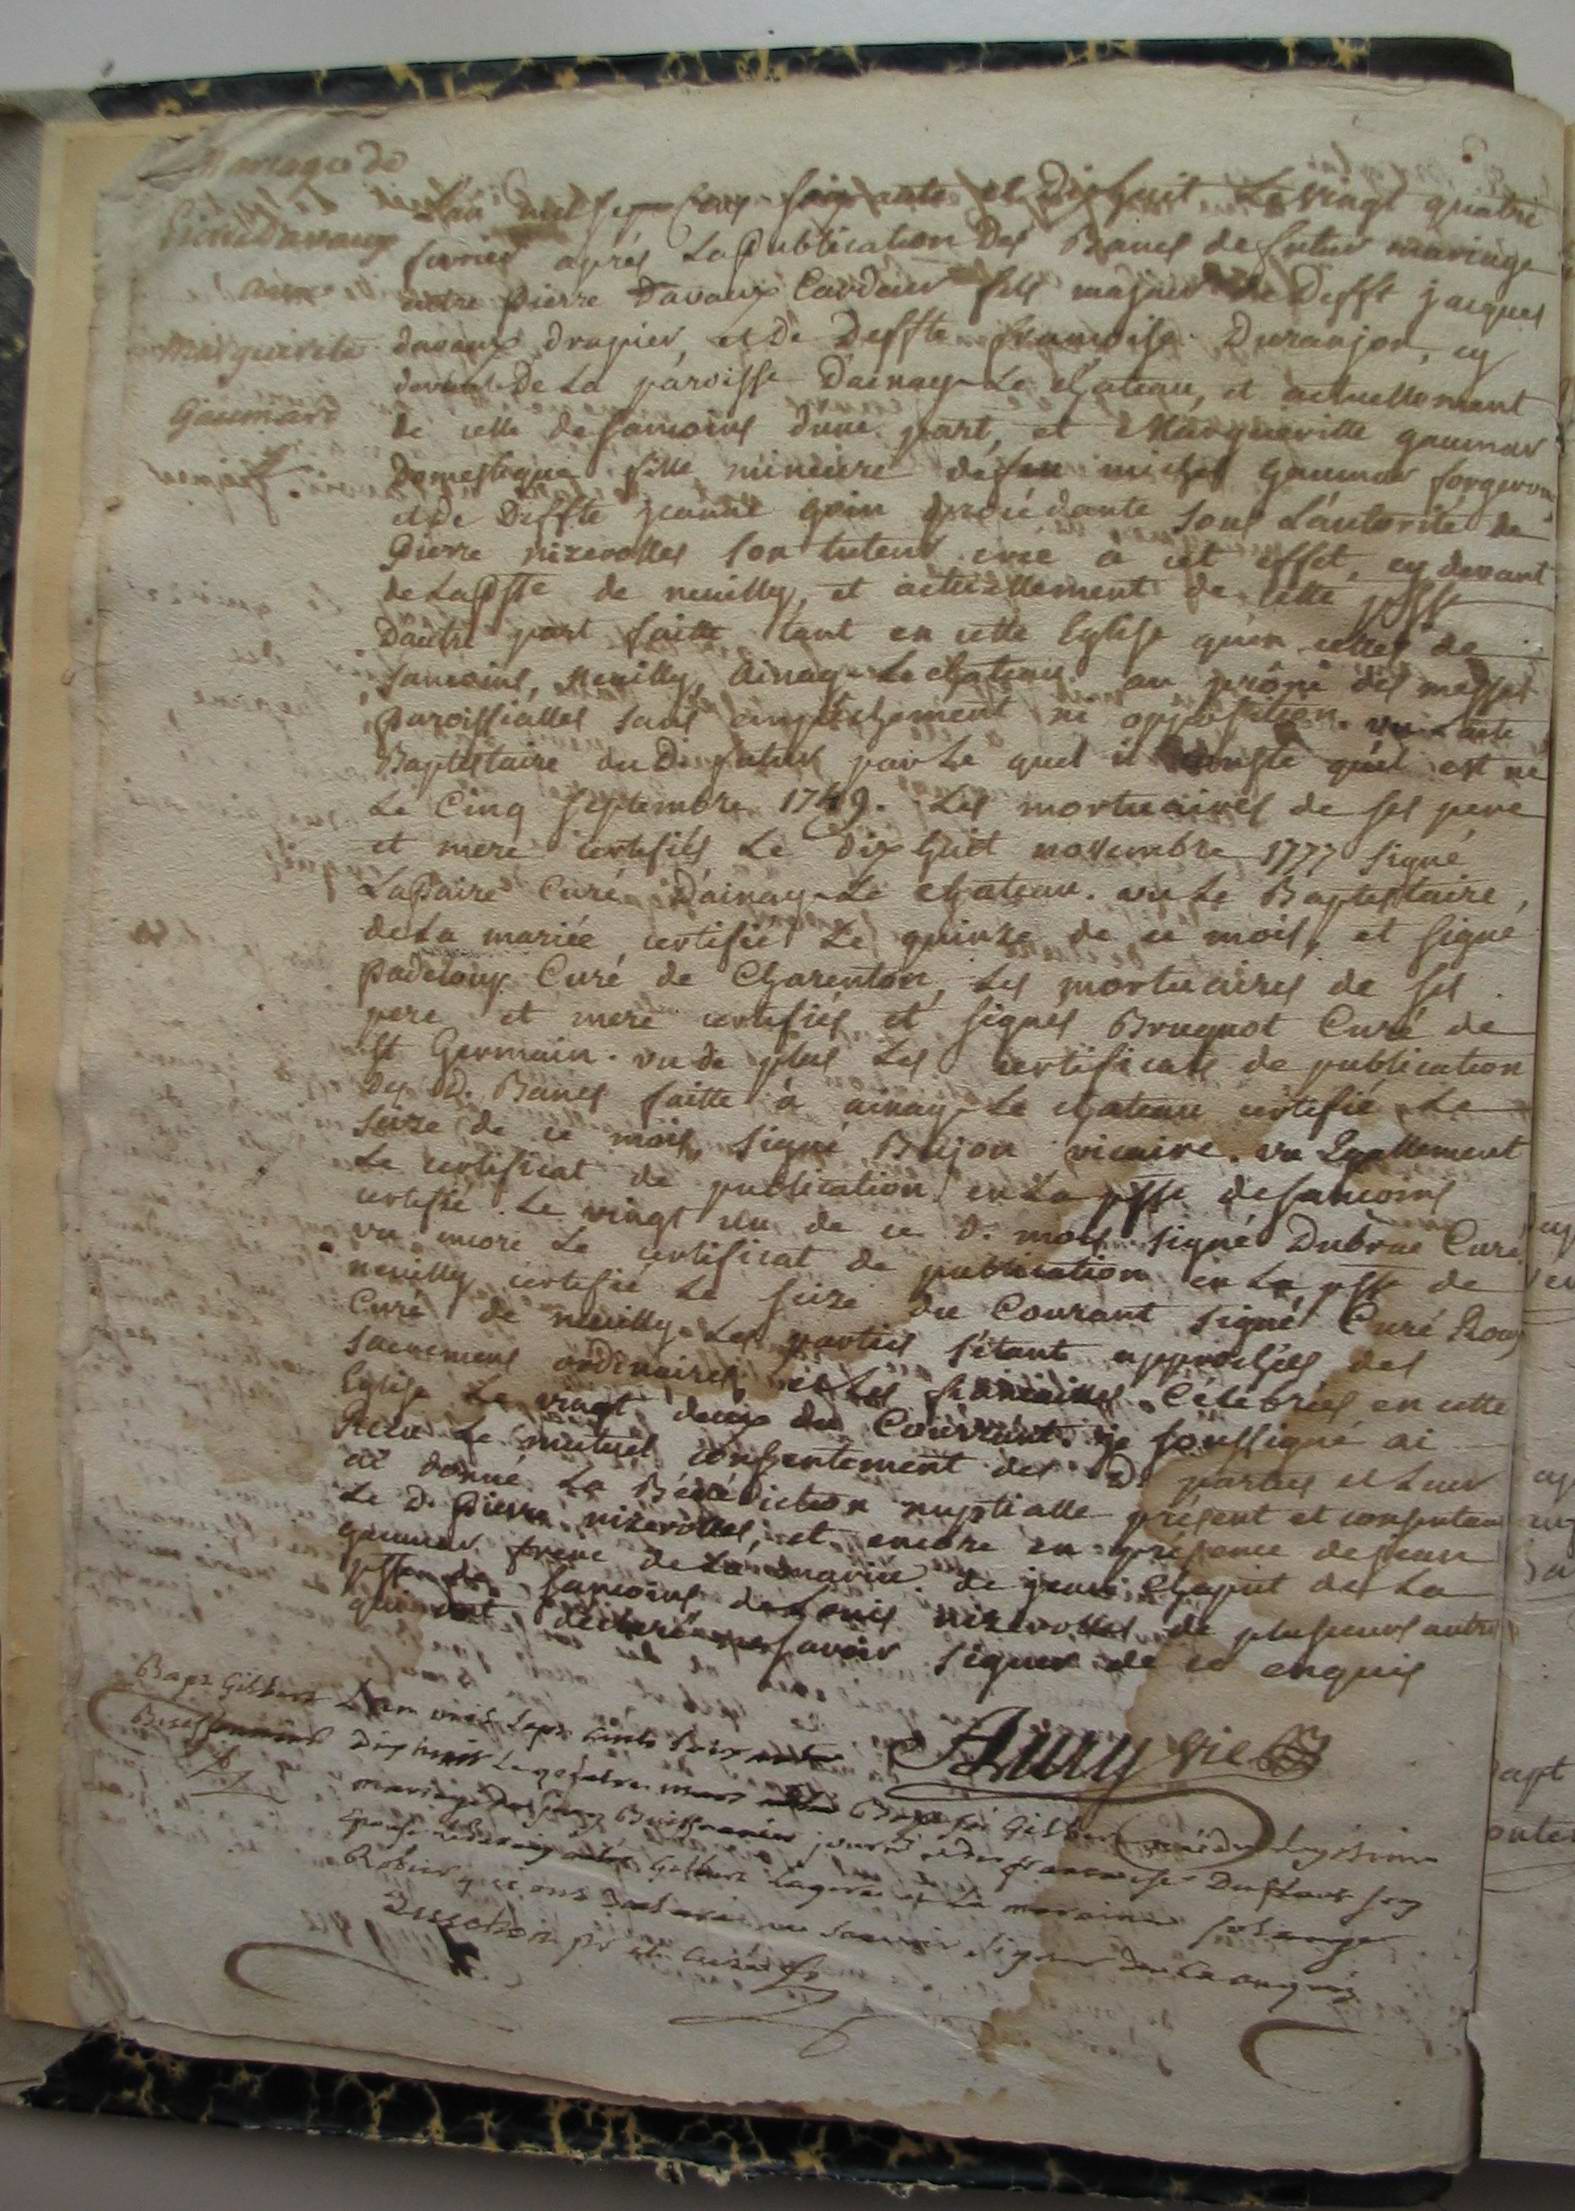 Mariage de
Pierre Davaux
avec
Marguerite
Gaumard
L'an mil sept cent soixante et Dix huit Le vingt quatre
fevrier après La publication Des Bancs de futur mariage
entre pierre Davaux Cardeur fils majeur de Defft jacques
davaux drapier, et De Deffte francoise Duranjon, cy
devant De La paroisse D'ainay Le Chateau, et actuellement
de celle de sancoins d'une part, et Margueritte gaumar
Domestique fille mineure de feu michel gaumar forgeron
et De Deffte jeanne goin procédante sous L'autorité de
Pierre nizerolles son tuteur créé a cet effet, cy devant
de La psse de neuilly, et actuellement de cette psse
D'autre part faitte tant en cette Eglise qu'en celles de
sancoins, Neuilly, Ainay Le chateau au prône des messes
paroissialles sans empêchement ni opposition. vu L'acte
Baptistaire du D. futur par Le quel il conste qu'il est né
Le Cinq septembre 1749. Les mortuaires de ses pere
et mere certifiés Le dix huit novembre 1777 signé
Lapaire Curé D'ainay Le chateau. vu Le Baptistaire
de La mariée certifié Le quinze de ce mois, et signé
padeloup Curé de Charenton, Les mortuaires de ses
pere et mere certifiés et signés Brugnot Curé de
st Germain. vu de plus Les certificats de publication
Des D. Bancs faitte à ainay Le chateau certifié Le
seize de ce mois, signé Bujon vicaire. vu Egallement
Le certificat de publication en La psse de sancoins
certifié Le vingt un de ce d. mois signé Dubrac Curé
vu encore Le certificat de publication en La psse de
neuilly certifié Le seize du Courant signé Curé Roux
Curé de neuilly. Les parties s'étant approchées des
sacremens ordinaires, et Les fiancailles Célébrées en cette
Eglise Le vingt deux du Courrant. je soussigné ai
Recu Le mutuel consentement des D. parties et Leur
ai donné La Bénédiction nuptialle présent et consentant
Le D. Pierre nizerolles, et encore en présence de jean
gaumar frere de La mariée de jean Chaput de La
psse de sancoins de Louis nizerolles de plusieurs autres
qui ont déclaré ne savoir signer de ce enquis
Bapt Gilbert
L'an mil sept cents soix ante
Dix huit Le quatre mars Gilbert né du Legitime
mariage De Buissonnier journalier françoise Duflaut son
epouse Le parain Gilbert Lagoute et La maraine solange
Robier qui ont Declaré ne sçavoir signer De ce enquis
curé